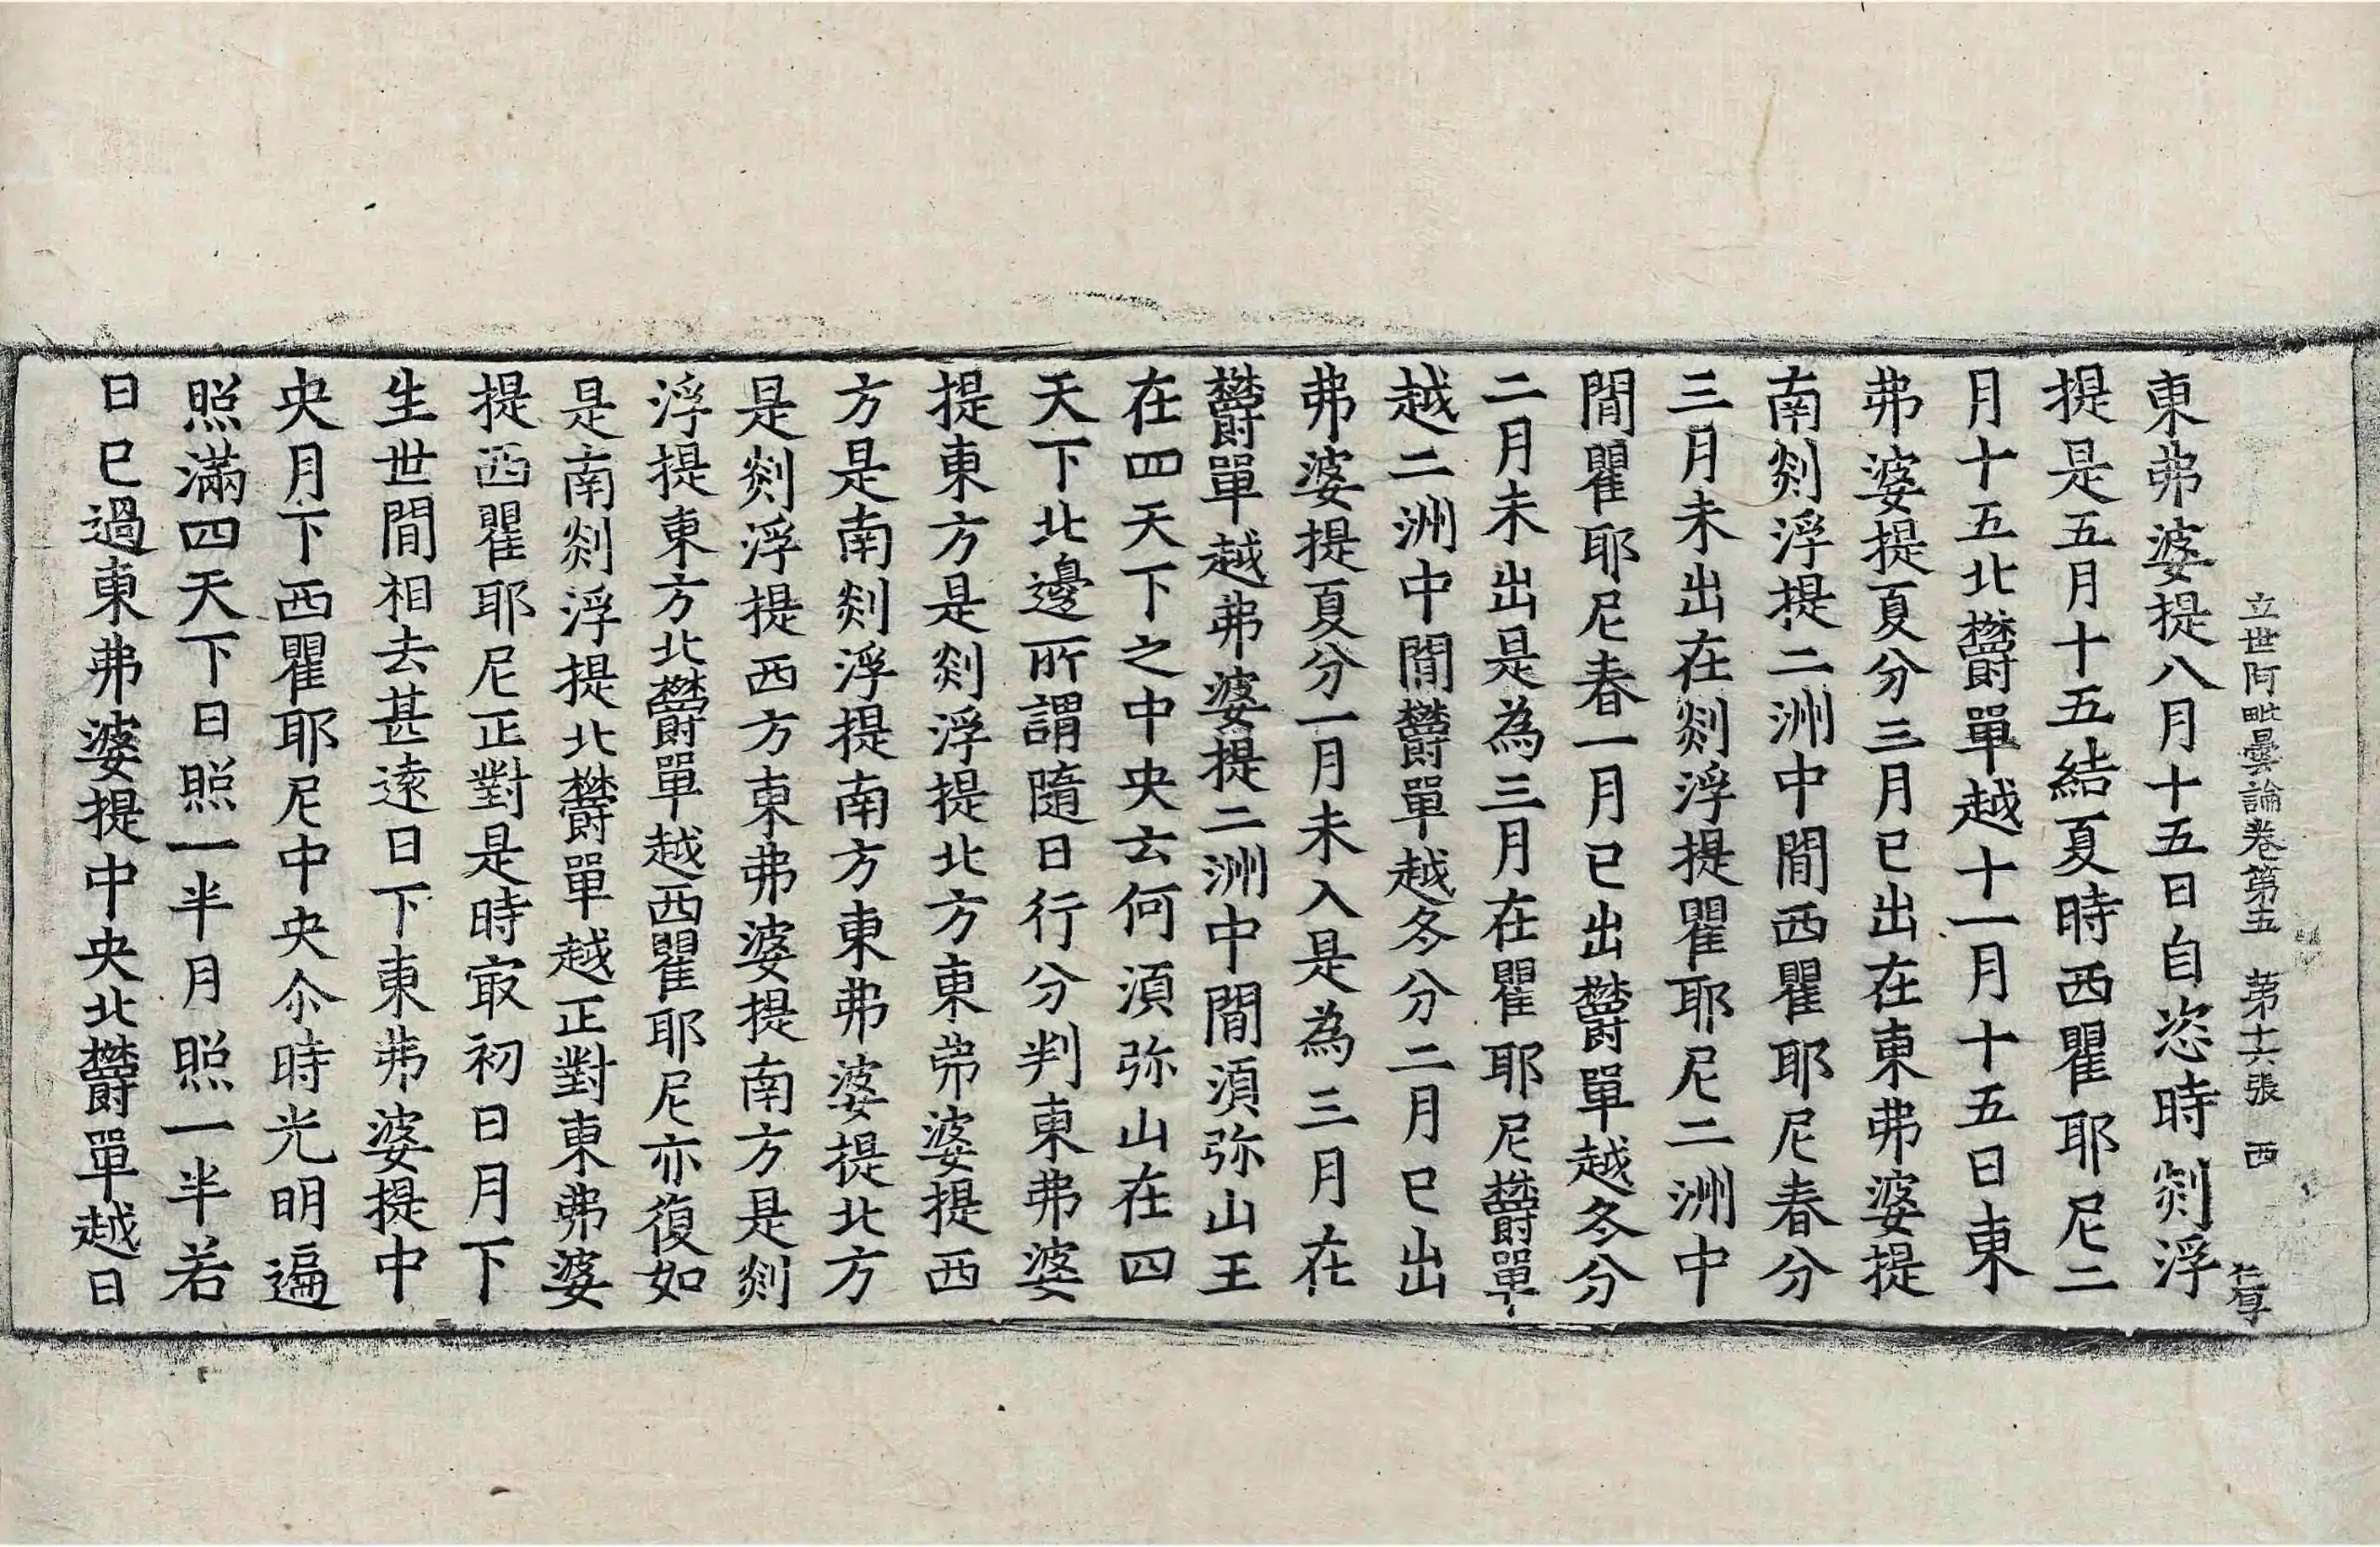 立世阿毗曇論卷第五 第十六張 西
東弗婆提八月十五日自恣時剡浮
提是五月十五結夏時西瞿耶尼二
月十五北欝單越十一月十五日東
弗婆提夏分三月已出在東弗婆提
南剡浮提二洲中間西瞿耶尼春分
三月未出在剡浮提瞿耶尼二洲中
間瞿耶尼春一月已出欝單越冬分
二月未出是為三月在瞿耶尼欝單
越二洲中間欝單越冬分二月已出
弗婆提夏分一月未入是為三月在
欝單越弗婆提二洲中間須弥山王
在四天下之中央云何須弥山在四
天下北邊所謂隨日行分判東弗婆
提東方是剡浮提北方東弗婆提西
方是南剡浮提南方東弗婆提北方
是剡浮提西方東弗婆提南方是剡
浮提東方北欝單越西瞿耶尼亦復如
是南剡浮提北欝單越正對東弗婆
提西瞿耶尼正對是時㝡初日月下
生世間相去甚遠日下東弗婆提中
央月下西瞿耶尼中央尒時光明遍
照滿四天下日照一半月照一半若
日已過東弗婆提中央北欝單越日